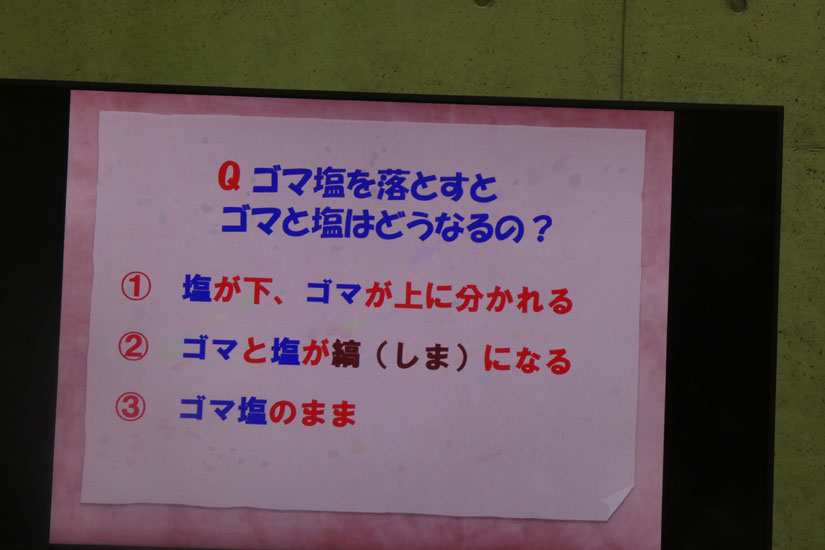 Q ゴマ塩を落とすと
ゴマと塩はどうなるの？
① 塩が下、ゴマが上に分かれる
② ゴマと塩が縞（しま）になる
③ ゴマ塩のまま